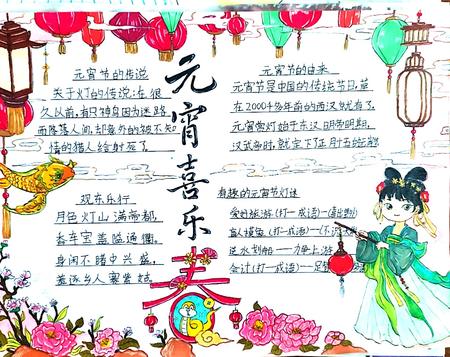 元宵喜乐
春
元宵节的传说
关于灯的传说:在很
久以前,有只神鸟因为迷路
而降落人间,却意外的被不知
情的猎人给射死了
元宵节的由来
元宵节是中国的传统节日,早
在2000多年前的西汉就有了,
元宵赏灯始于东汉明帝时期,
汉武帝时,就定下了正月十五
观灯乐行
月色灯山满帝都,
香车宝盖隘通衢。
身闲不睹中兴盛,
羞逐乡人赛紫姑。
有趣的元宵节灯谜
爱好旅游(打一成语)—(喜出
盲人摸象(打一成语)—(不
逆水划船——力争上游
会计(打一成语)—足